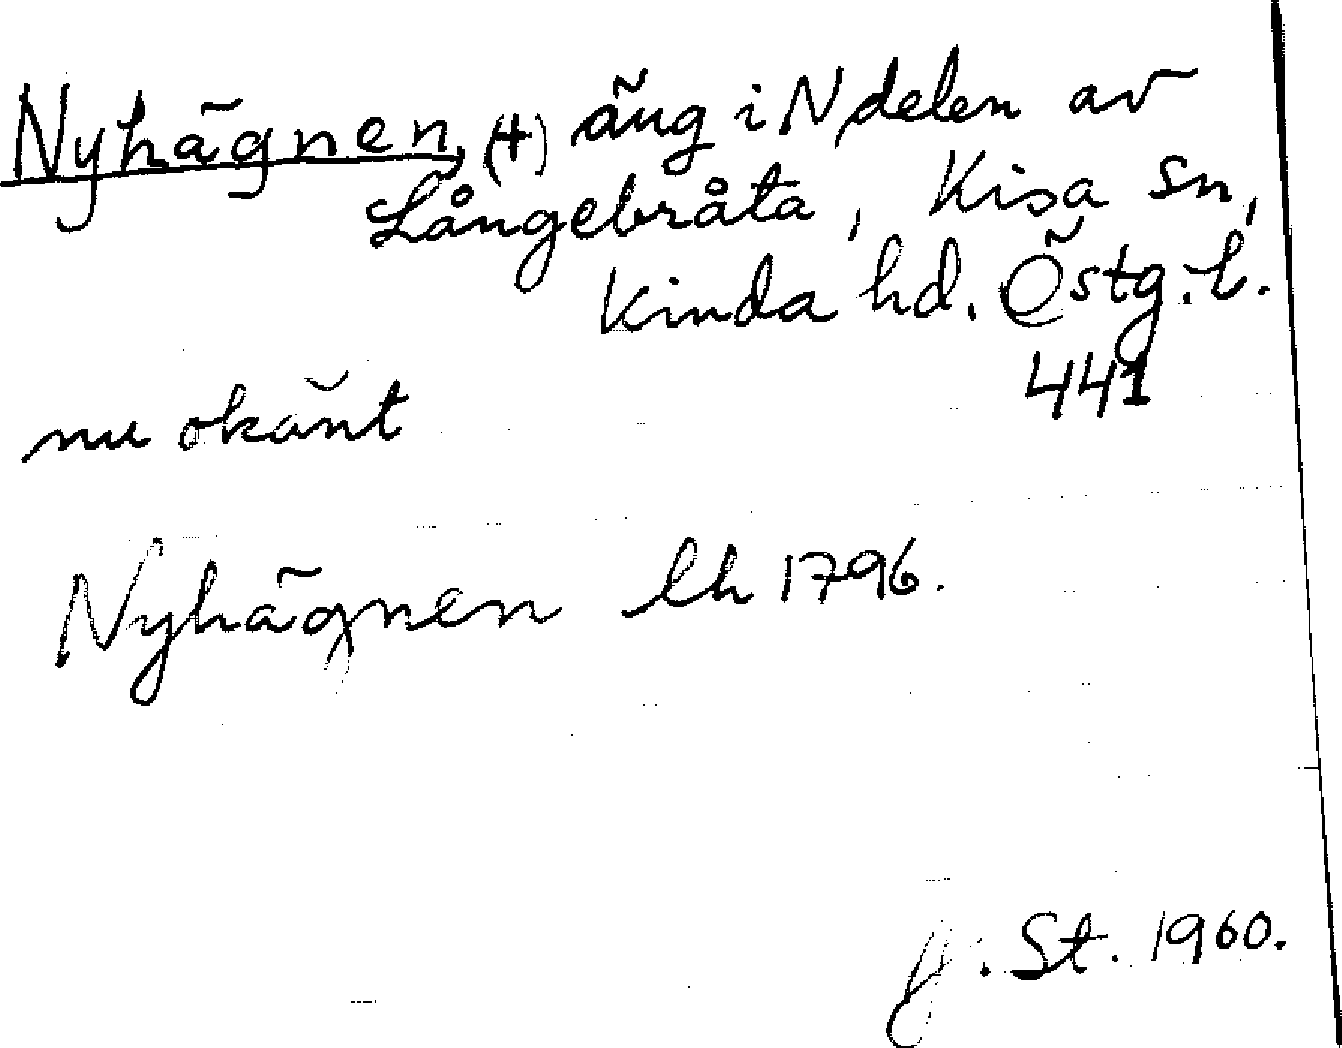 Nyhägnen, (+) äng i N delen av
Långebråta, Kisa sn,
Kinda hd. Östg. l.
441
nu okänt
Nyhägnen lh 1796.
J. St. 1960.